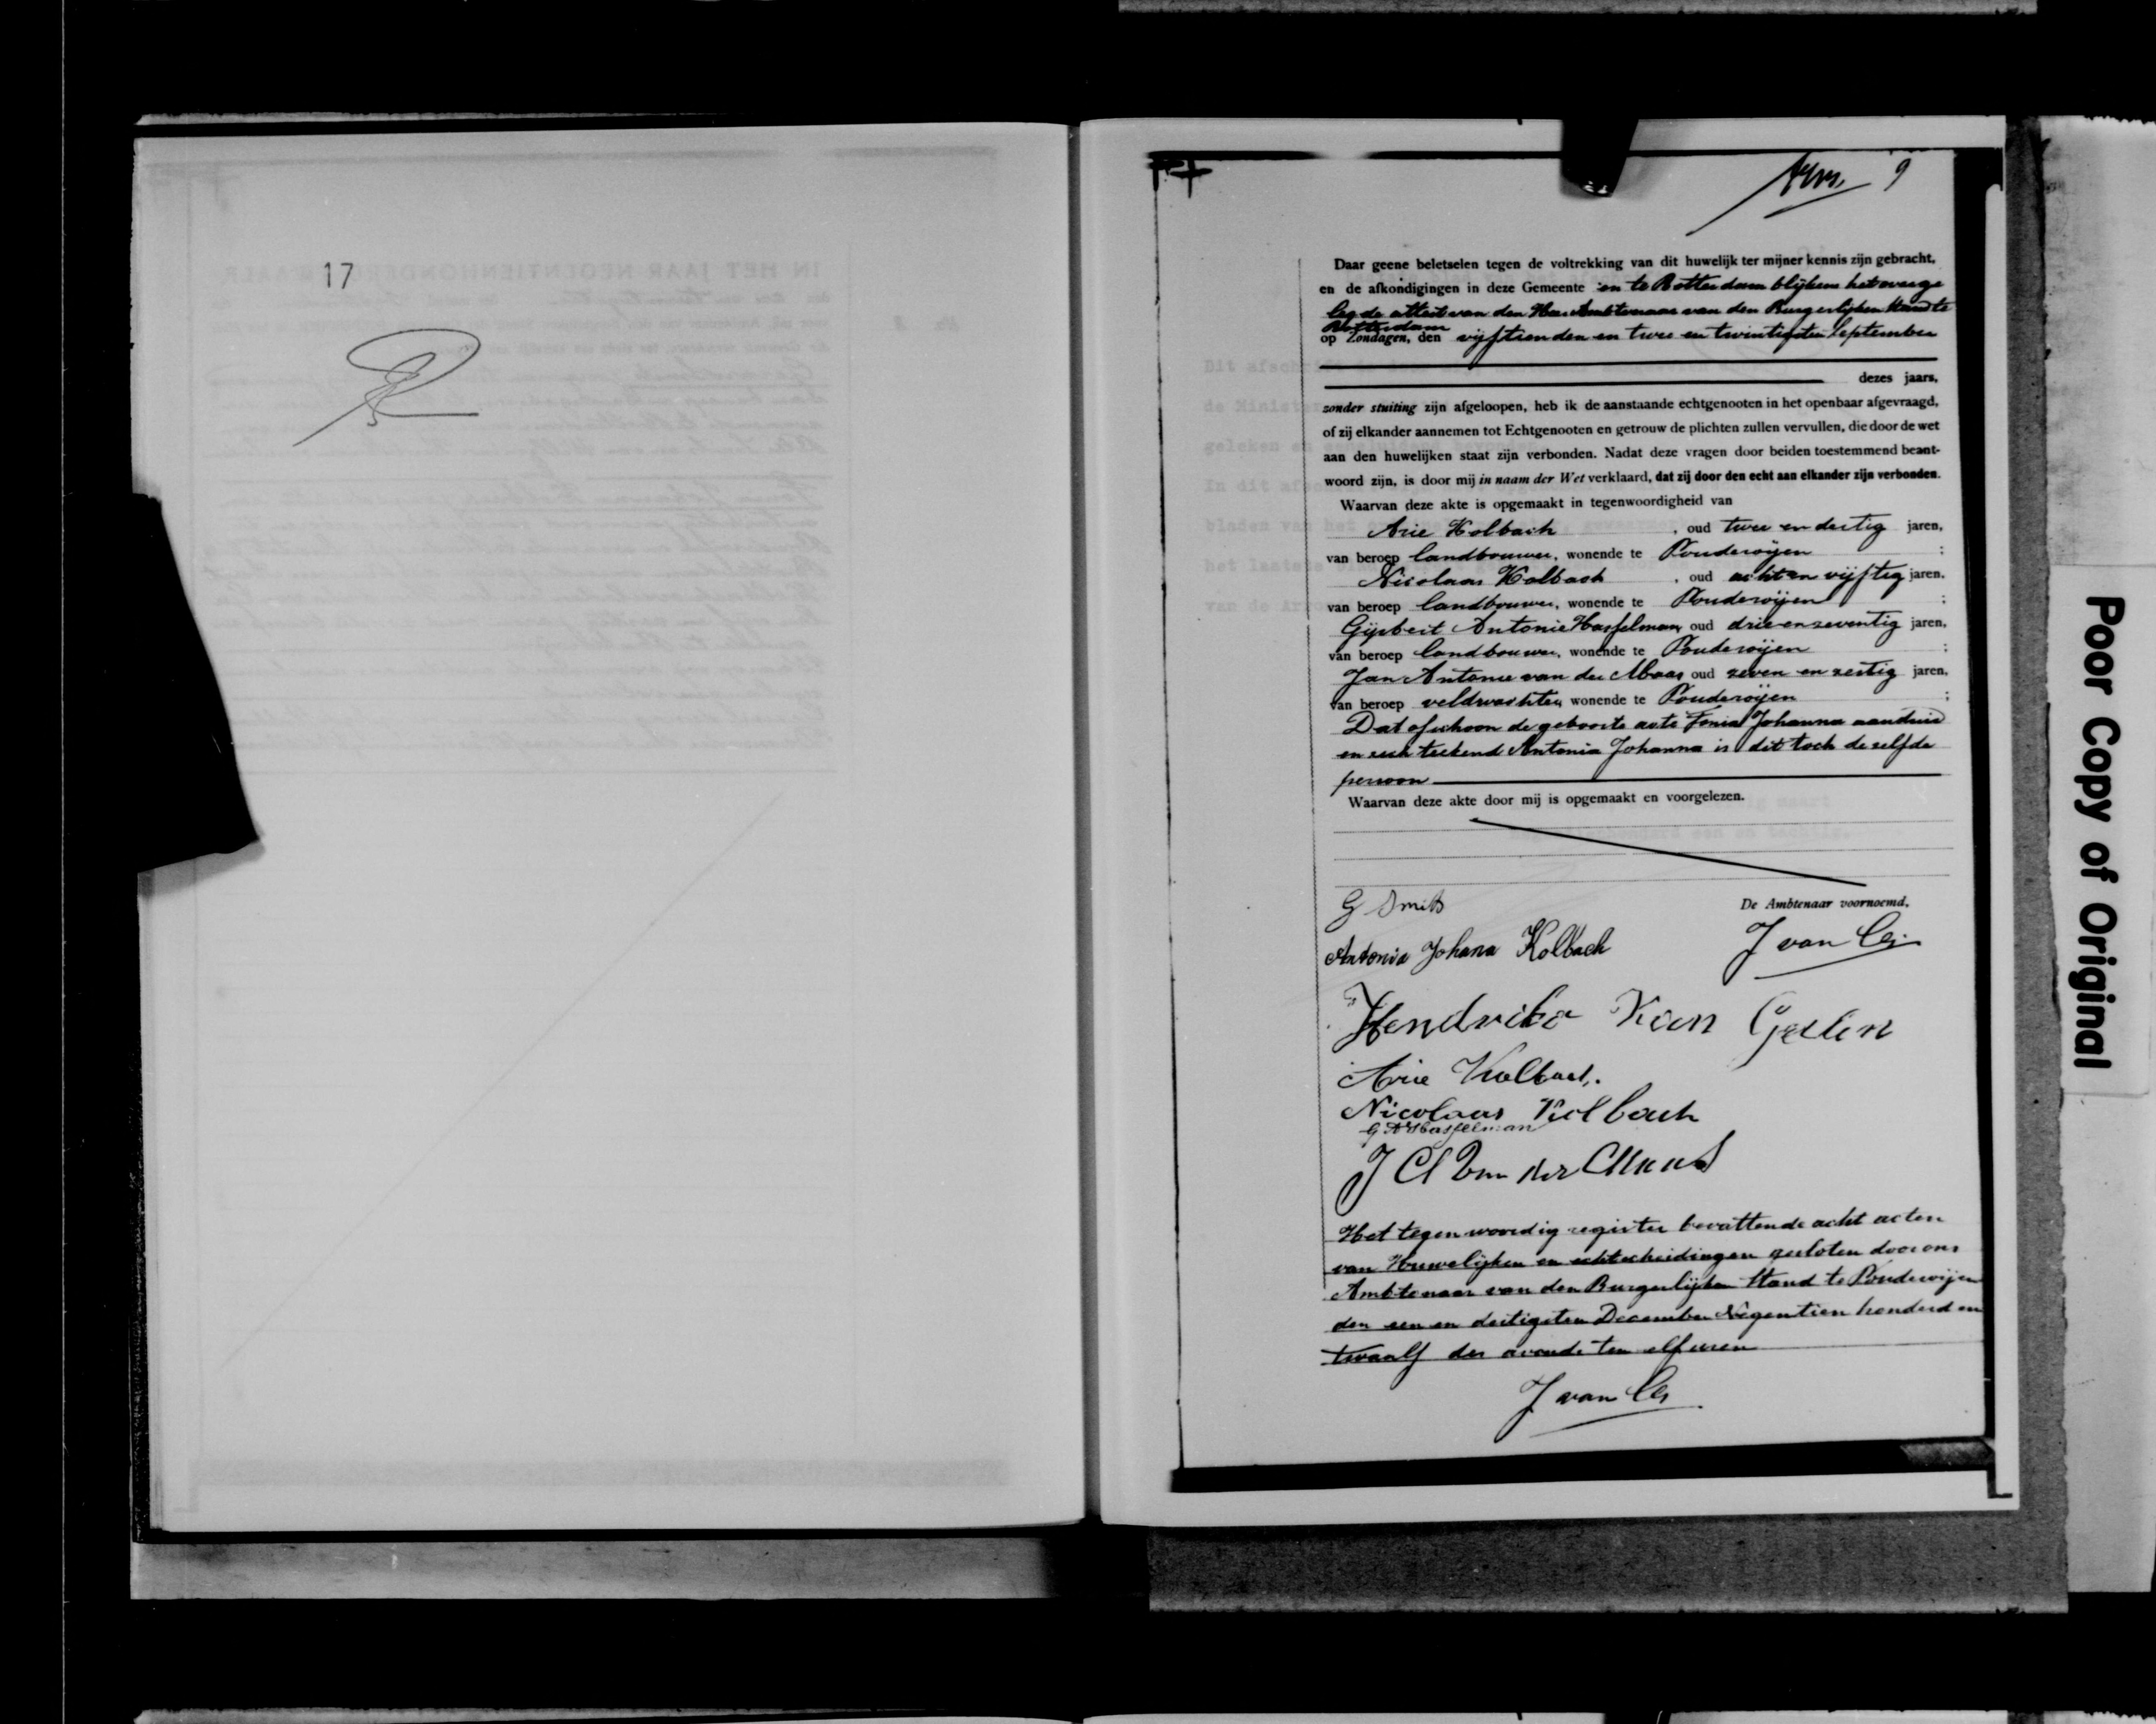 17
9
Daar geene beletselen tegen de voltrekking van dit huwelijk ter mijner kennis zijn gebracht,
en de afkondigingen in deze Gemeente en te Rotterdam blijkens het overge
legde attest van den Heer Ambtenaar van den Burgerlijken Stand te
Rotterdam
op Zondagen, den vijftienden en twee en twintigsten September
dezes jaars,
zonder stuiting zijn afgeloopen, heb ik de aanstaande echtgenooten in het openbaar afgevraagd,
of zij elkander aannemen tot Echtgenooten en getrouw de plichten zullen vervullen, die door de wet
aan den huwelijken staat zijn verbonden. Nadat deze vragen door beiden toestemmend beant-
woord zijn, is door mij in naam der Wet verklaard, dat zij door den echt aan elkander zijn verbonden.
Waarvan deze akte is opgemaakt in tegenwoordigheid van
Arie Kolbach, oud twee en dertig jaren,
van beroep landbouwer, wonende te Poederoijen ;
Nicolaas Kolbach, oud acht en vijftig jaren,
van beroep landbouwer, wonende te Poederoijen ;
Gijsbert Antonie Hasselman, oud drie en zeventig jaren,
van beroep landbouwer, wonende te Poederoijen ;
Jan Antonie van der Maas oud zeven en zestig jaren,
van beroep veldwachter, wonende te Poederoijen ;
Dat ofschoon de geboorte acte Tonia Johanna aanduid
en zich teekend Antonia Johanna is dit toch de zelfde
persoon
Waarvan deze akte door mij is opgemaakt en voorgelezen.
G Smits
De Ambtenaar voornoemd,
Antonia Johana Kolbach
J van
Hendrika Van Gelen
Arie Kolbach.
Nicolaas Kolbach
G A Hasselman
J A Van der Maas
Het tegenwoordig register bevattende acht acten
van Huwelijken en echtscheidingen gesloten door ons
Ambtenaar van den Burgerlijken Stand te Poederoijen
den een en dertigsten December Negentien honderd en
twaalf des avonds ten elf uren
J van
Poor Copy of Original